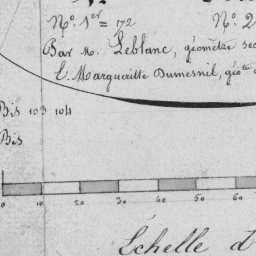 N.º 1.er = 172 N.º 2
Par M. Leblanc, géomètre sec
E. Margueritte Dumesnil, géo
Bis 103 104
Bis
0 10 20 30 40 50 60
Échelle d